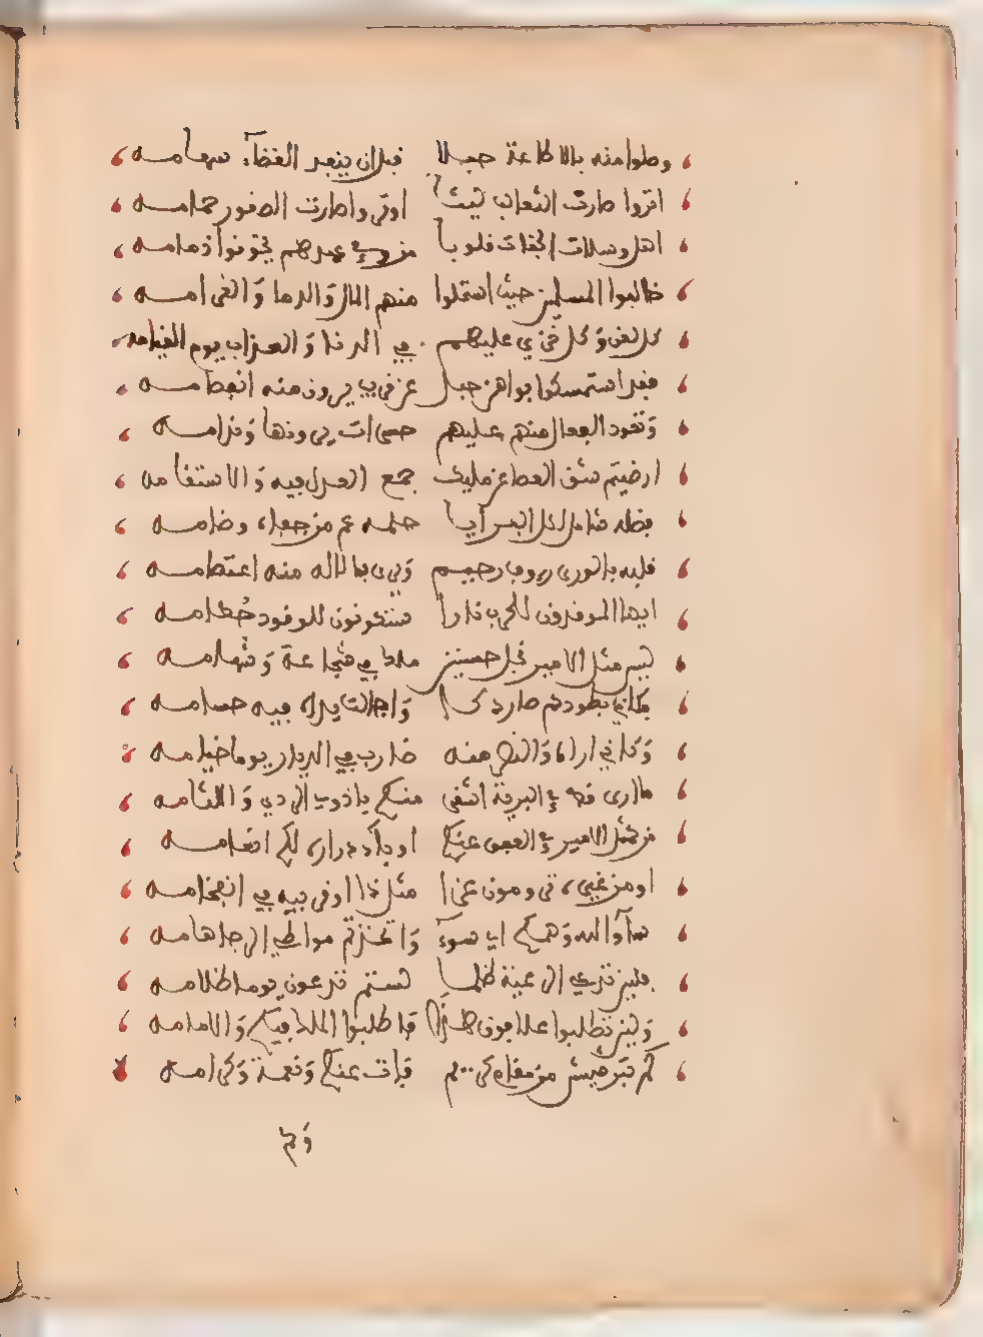 وصلوا منه بالاطاعة حبلا قبل ان ينفذ القضآء سهامه
اتروا صارت الثعالب ليثا او قى واصارت الصقور حمامه
من بعد عهدهم يخونوا ذمامه
طالبوا المسلمين حيث استحلوا منهم المال والدما والغرامه
كل لعن وكل خزي عليهم في الدنا والعذاب يوم القيامه
فقد استمسكوا بواهن حبل عن قريب يرون منه انفصامه
وتعود الفعال منهم عليهم حسرات يرونها وندامه
ارضيتم بشق العصا عن مليك جمع العدل فيه والاستقامه
فضله شامل لكل البرايا حلمه عم من جفاه وضامه
قلبه بالورى رءوف رحيم ويرى بالاله منه اعتصامه
ايها الموقدون للحرب نارا ستكونون للوقود حطامه
ليس مثل الامير نجل حسين ملك في شجاعة وشهامه
فكاني بطودكم صار دكا واجالت يداه فيه حسامه
وكاني اراه والنصر منه ضارب في الديار يوما خيامه
ما ارى في البرية اشقى منكم يا ذوي الردى والشامه
من كمثل الامير في العفو عنكم او باكداره لكم انعامه
او من غيره ترومون عزا مثل ذا او فيه في الفخامه
سآء والله وهمكم اي سوء واتخذتم مواطي الرجل هامه
فلين تدعي الرعية ظلما لستم تدعون يوما ظلامه
ولين تطلبوا علا دون هذا فاطلبوا الملك فيكم والامامه
كم تبر من مقام كريم فات عنكم ونعمة وكرامه
وكم